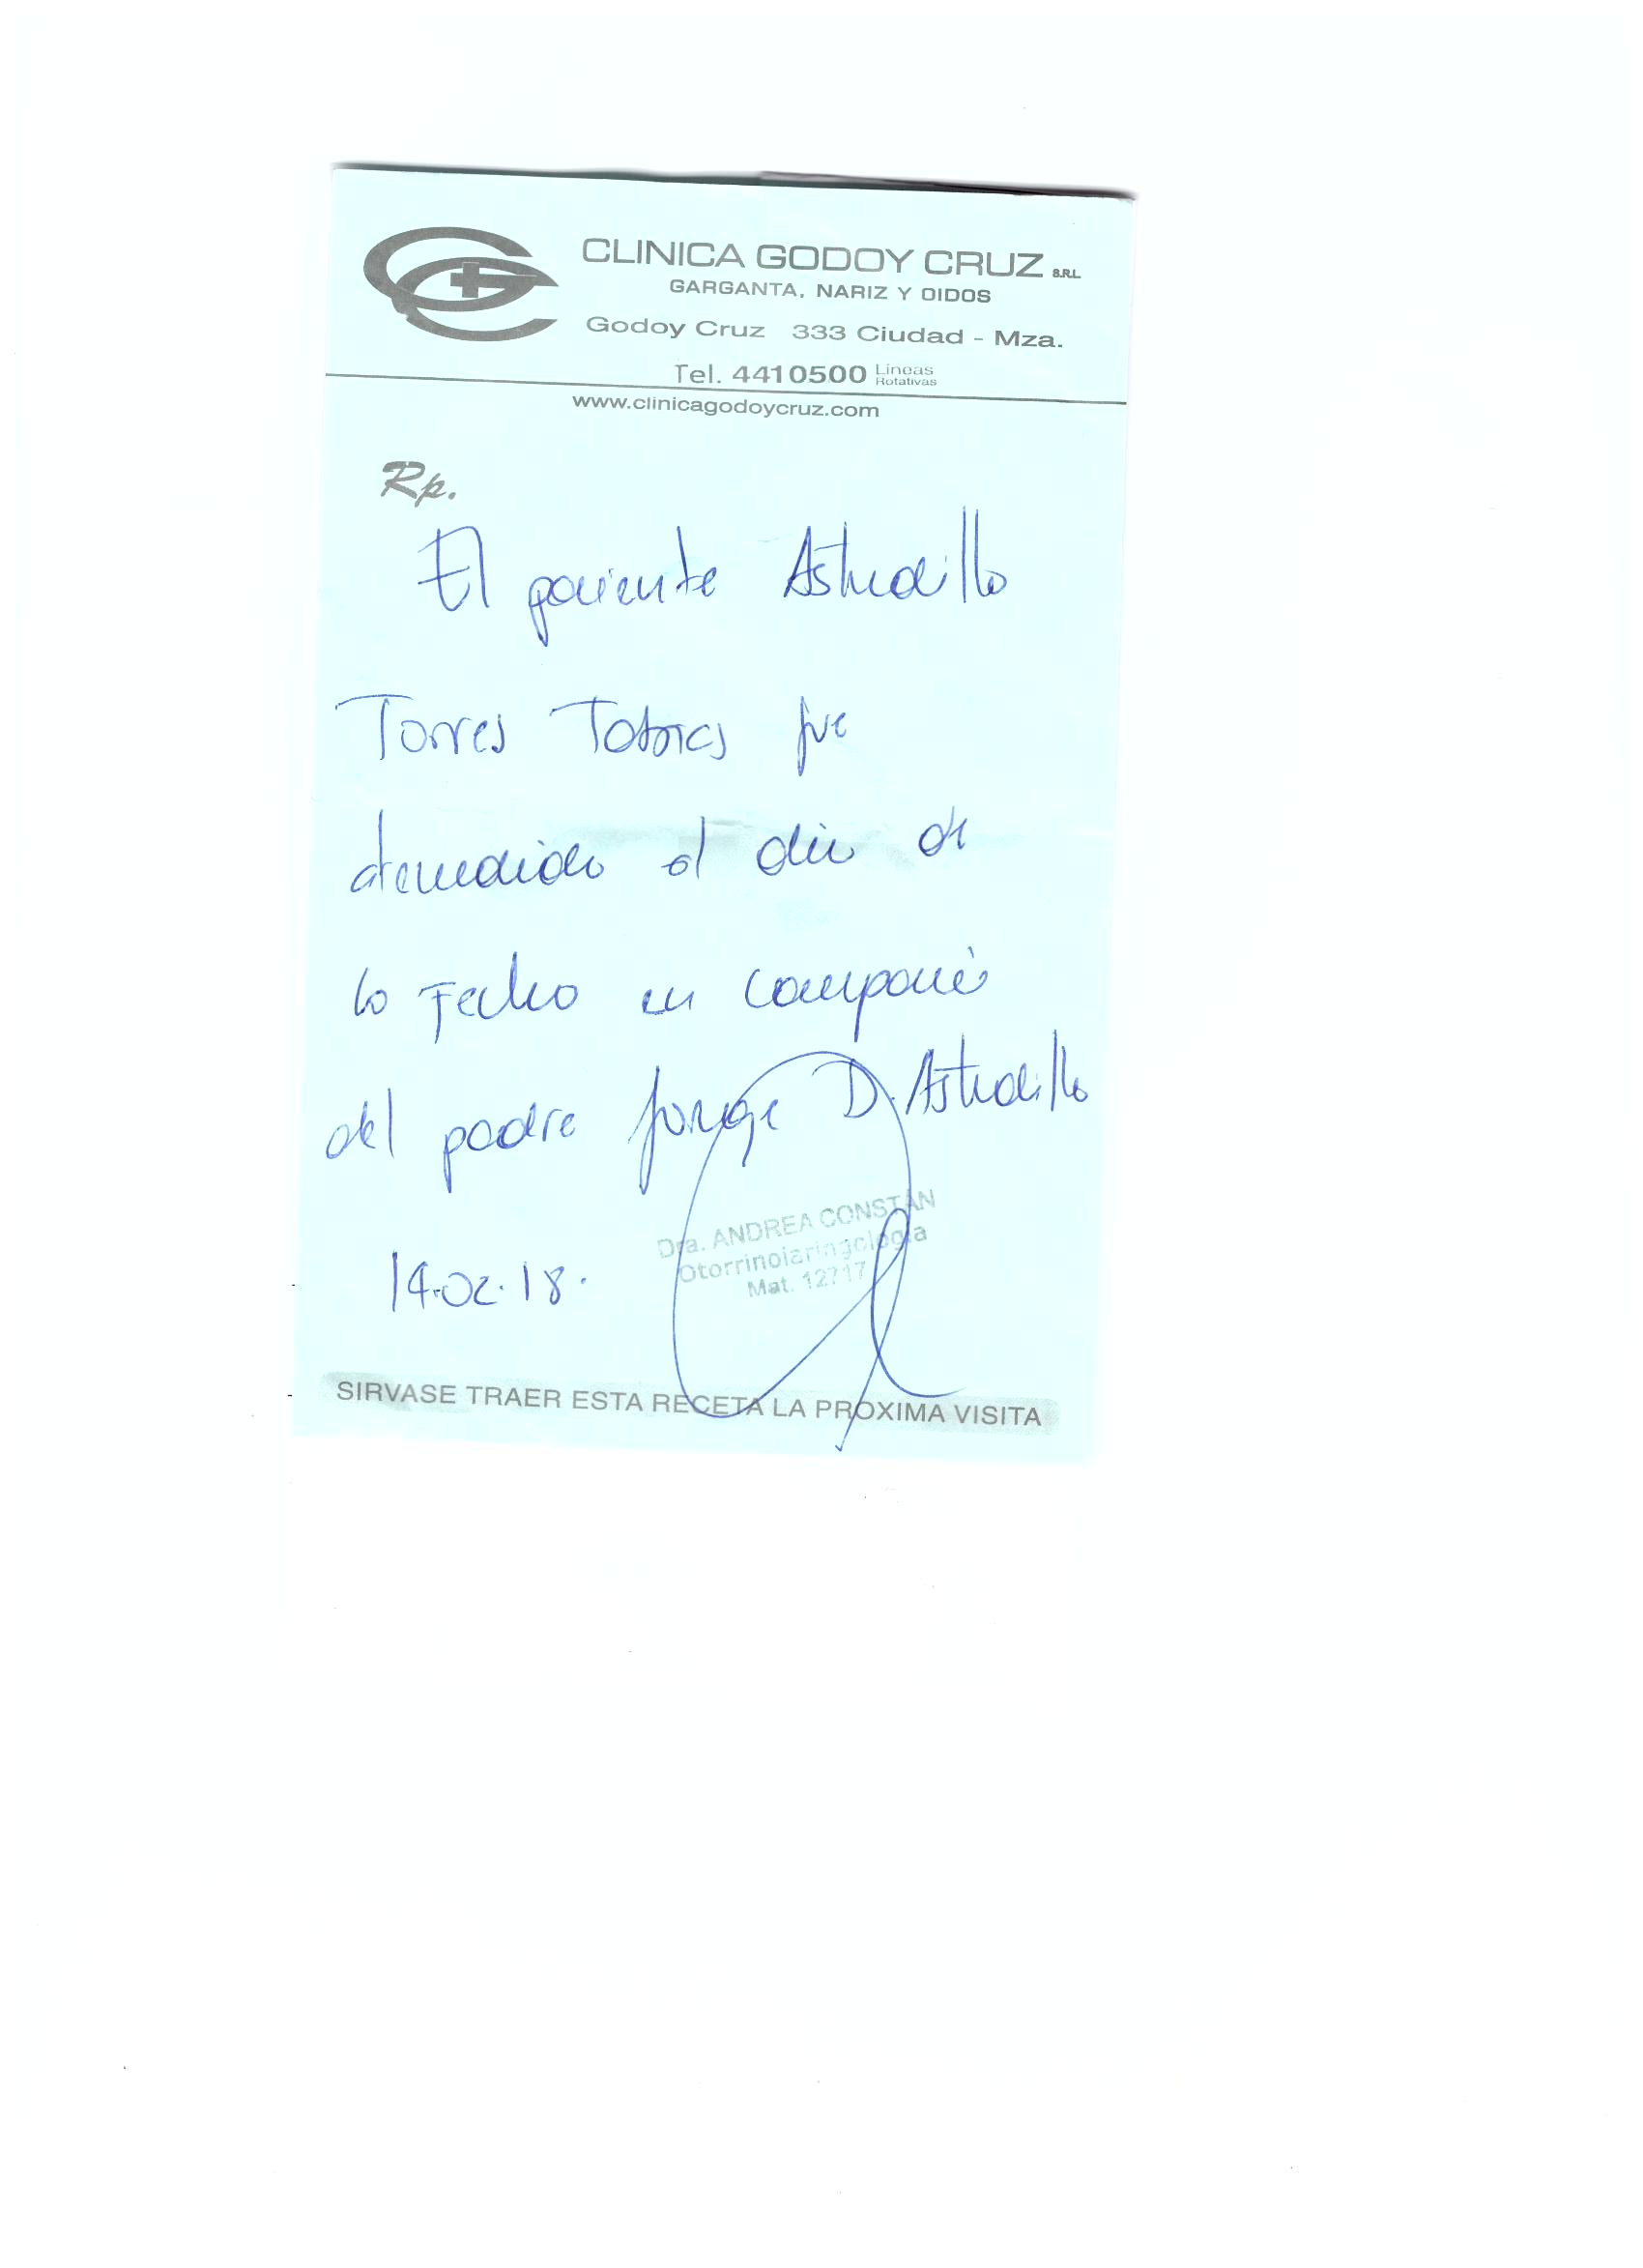 CLINICA GODOY CRUZ S.R.L.
GARGANTA, NARIZ Y OIDOS
Godoy Cruz 333 Ciudad - Mza.
Tel. 4410500 Lineas Rotativas
www.clinicagodoycruz.com
Rp.
El paciente Astudillo
Torres Tobias fue
atendido el dia de
la Fecha en compañia
del padre Jorge D. Astudillo
Dra. ANDREA CONSTAN
Otorrinolaringologia
Mat. 12717
14.02.18.
SIRVASE TRAER ESTA RECETA LA PROXIMA VISITA